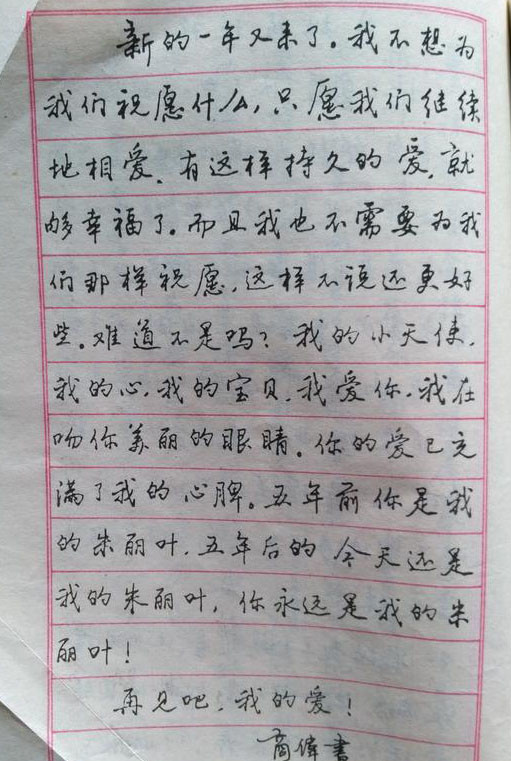 新的一年又来了。我不想为
我们祝愿什么,只愿我们继续
地相爱、有这样持久的爱,就
够幸福了。而且我也不需要为我
们那样祝愿,这样不说还更好
些。难道不是吗?我的小天使,
我的心,我的宝贝,我爱你,我在
吻你美丽的眼睛。你的爱已充
满了我的心脾。五年前你是我
的朱丽叶,五年后的今天还是
我的朱丽叶,你永远是我的朱
丽叶!
再见吧,我的爱!
商伟書